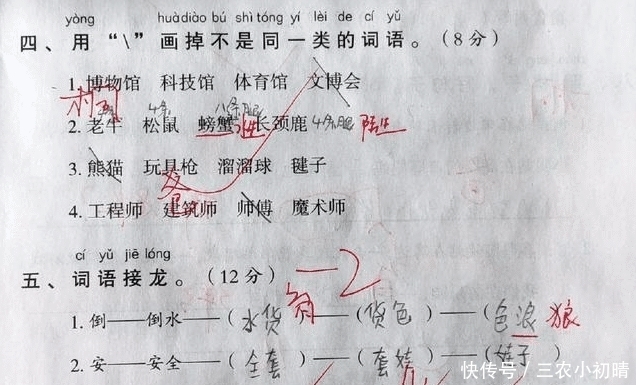 yòng huàdiào bú shì tóng yí lèi de cí yǔ
四、用“\”画掉不是同一类的词语。(8分)
1. 博物馆 科技馆 体育馆 文博会
4条 八条腿
2. 老牛 松鼠 螃蟹 长颈鹿 4条腿 陆生
3. 熊猫 玩具枪 溜溜球 毽子
4. 工程师 建筑师 师傅 魔术师
cí yǔ jiē lóng
五、词语接龙。(12分) —2
1. 倒——倒水——(水货)——(货色)——(色浪) 狼
2. 安——安全——(全套)——(套娃)——(娃子)
快传号/三农小初晴